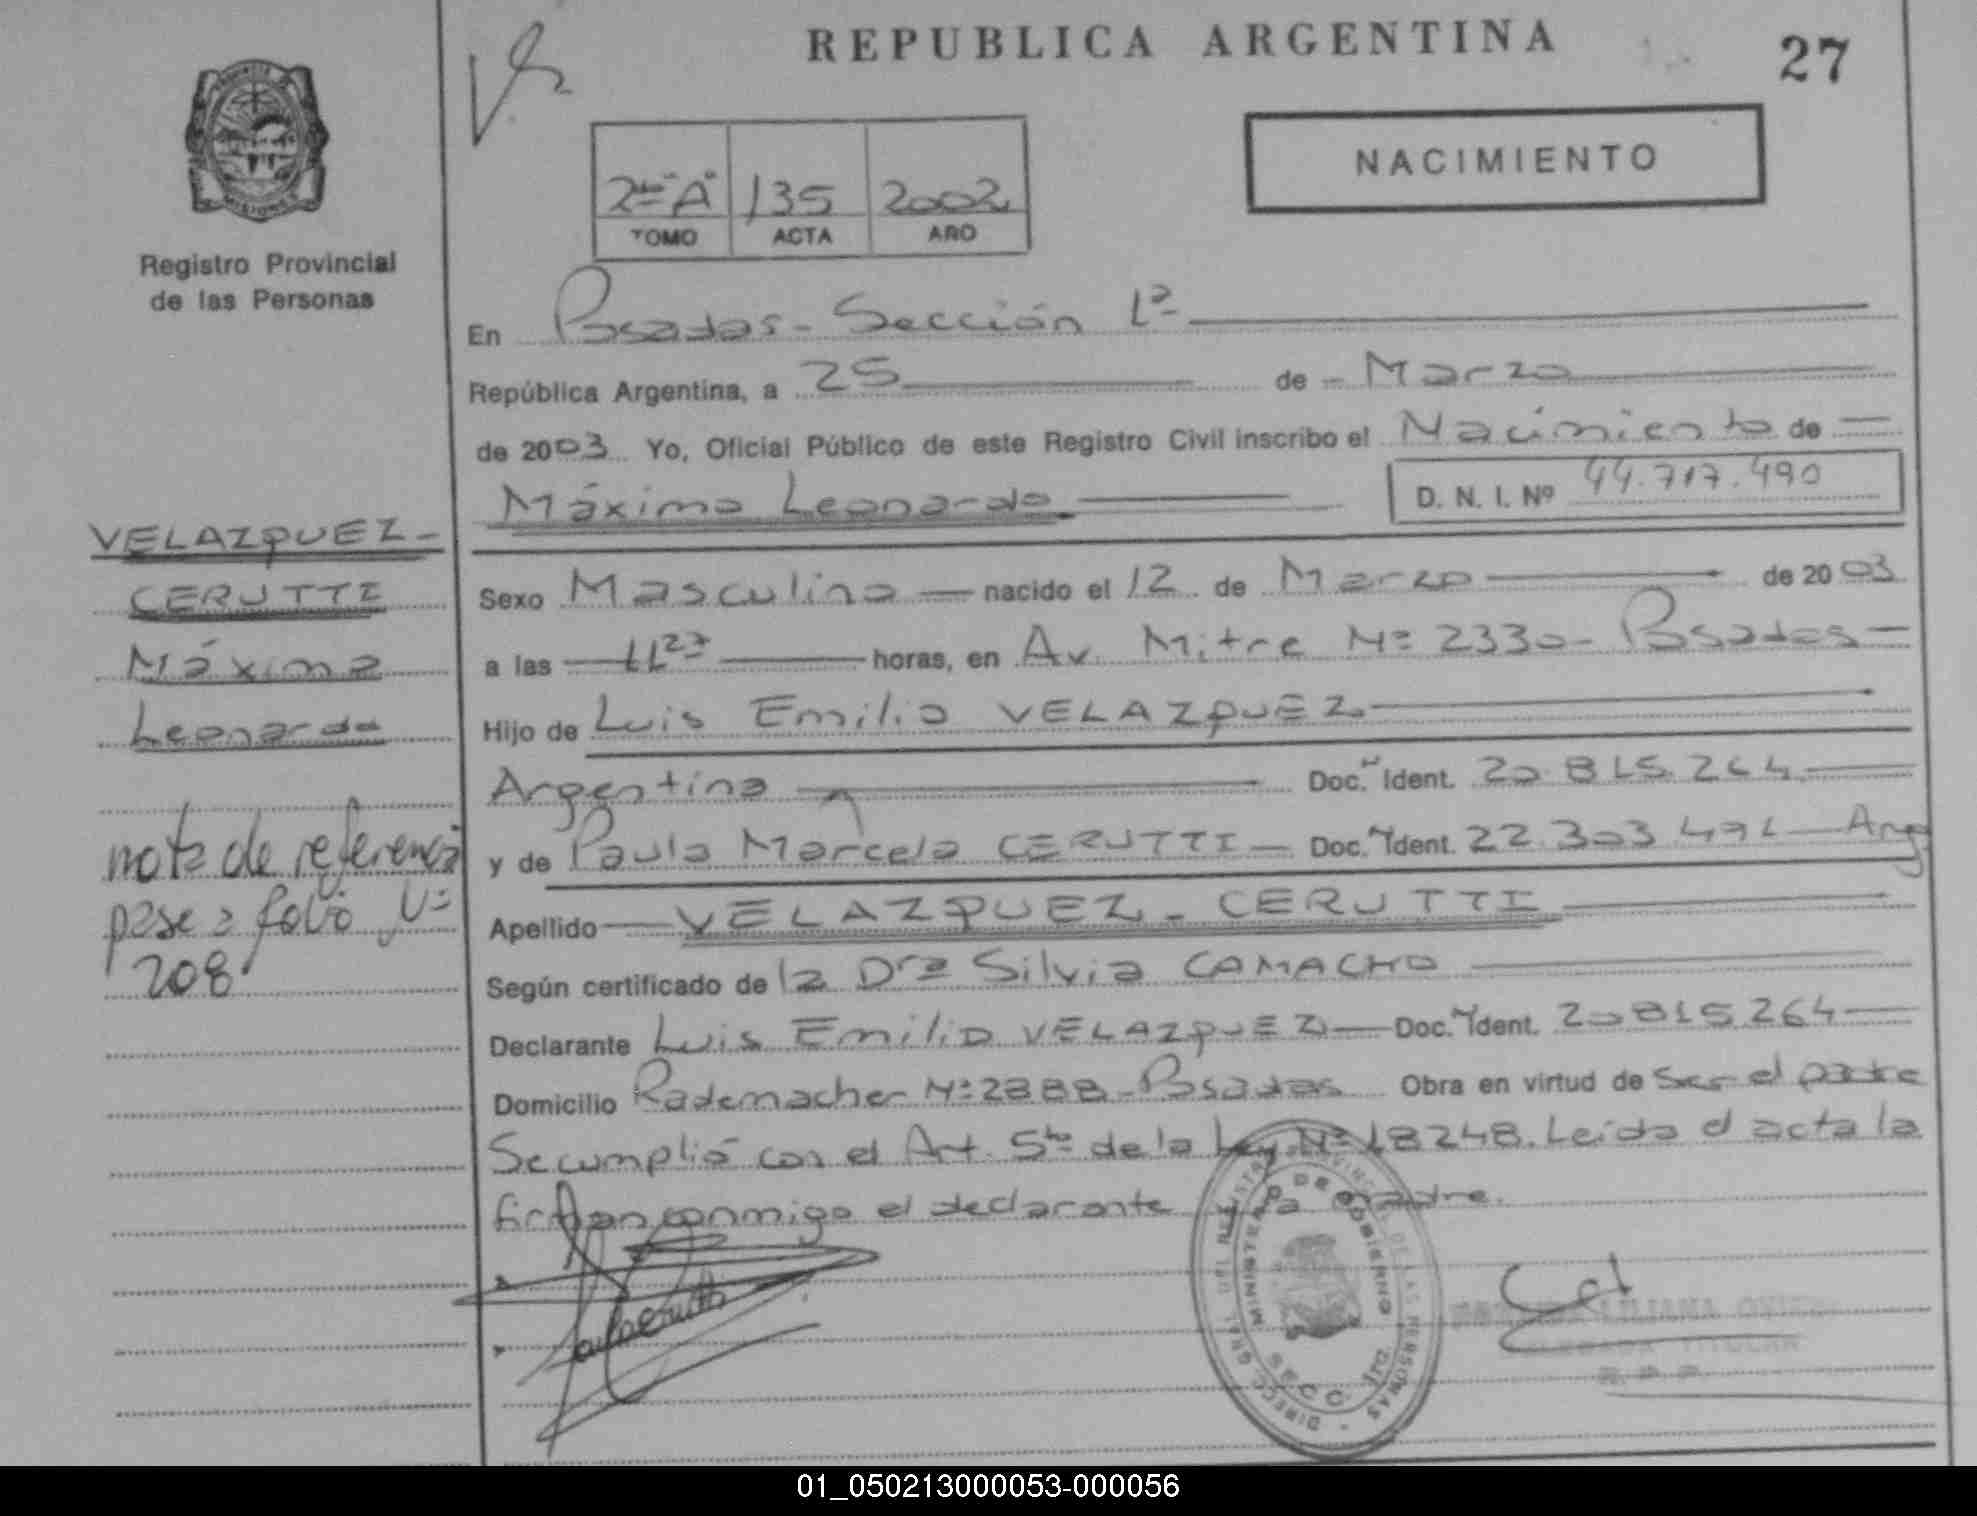 REPUBLICA ARGENTINA
27
NACIMIENTO
2do "A" 135 2002
TOMO ACTA AÑO
MISIONES
Registro Provincial
de las Personas
En Posadas - Sección 1a
República Argentina, a 25 de Marzo
de 2003 Yo, Oficial Público de este Registro Civil inscribo el Nacimiento de
Máximo Leonardo
D. N. I. Nº 44.717.490
VELAZQUEZ-
CERUTTI
Máximo
Leonardo
nota de referencia
pase a folio Nº
208
Sexo Masculino nacido el 12 de Marzo de 2003
a las 11 23 horas, en Av. Mitre Nº 2330 - Posadas
Hijo de Luis Emilio VELAZQUEZ
Argentino Doc. Ident. 20.815.264
y de Paula Marcela CERUTTI Doc. Ident. 22.303.491 Arg
Apellido VELAZQUEZ - CERUTTI
Según certificado de la Dra Silvia CAMACHO
Declarante Luis Emilio VELAZQUEZ Doc. Ident. 20815264
Domicilio Rademacher Nº 2888 - Posadas Obra en virtud de ser el padre
Se cumplió con el Art. 5to de la Ley Nº 18248. Leída el acta la
firman conmigo el declarante y la madre.
MINISTERIO DE GOBIERNO
LILIANA
TITULAR
01_050213000053-000056